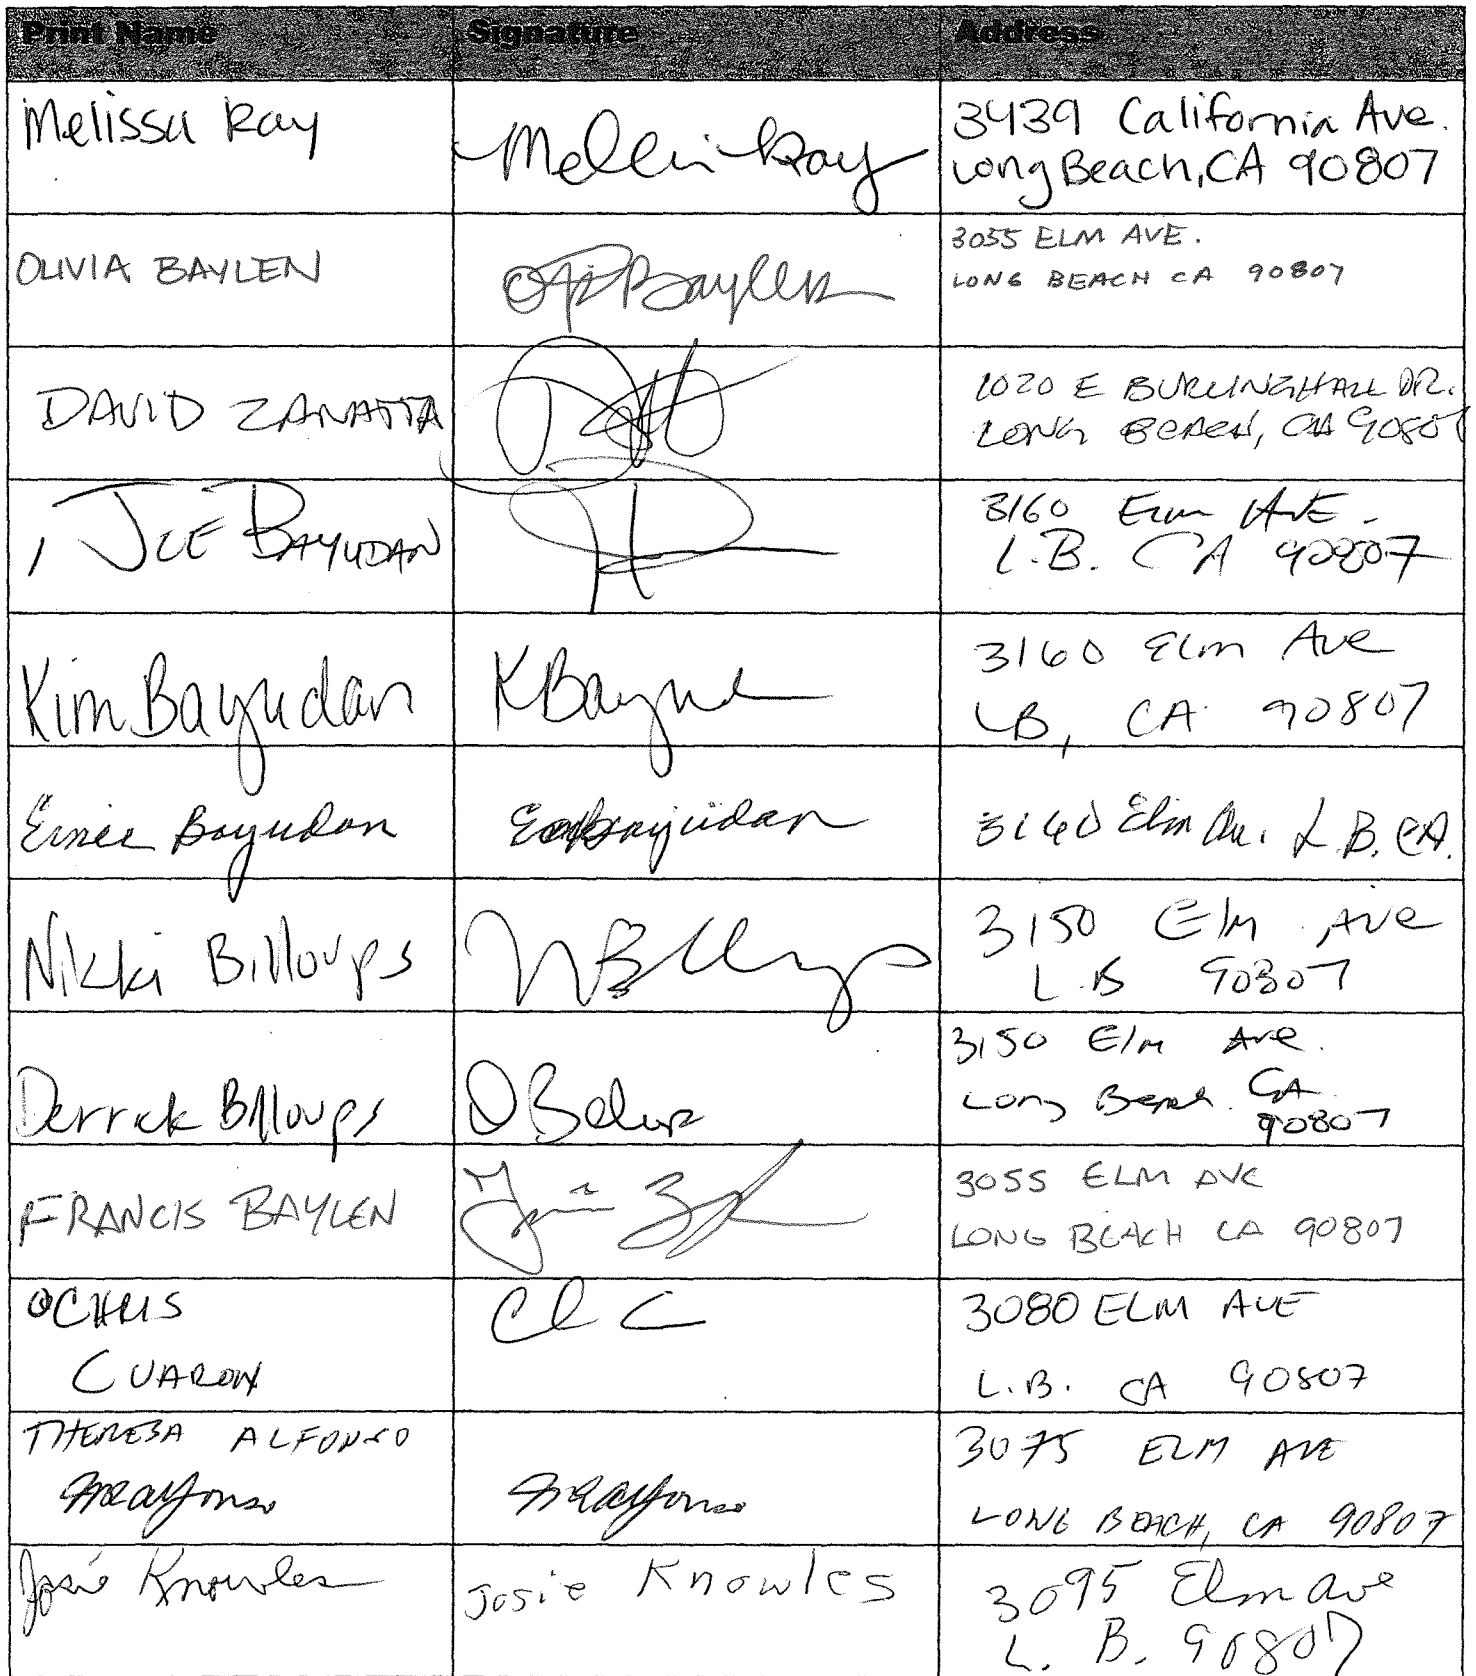 Print Name Signature Address
Melissa Ray
3439 California Ave.
Long Beach, CA 90807
OLIVIA BAYLEN
3055 ELM AVE.
LONG BEACH CA 90807
DAVID ZANATTA
1020 E
DR.
LONG BEACH, CA
JOE BAYUDAN
3160 Elm AVE.
L.B. CA 90807
Kim Bayudan
KBayu
3160 Elm Ave
LB, CA 90807
Bayudan
3160 Elm Av. L.B. CA.
Nikki Billoups
3150 Elm Ave
L.B 90807
Derrick Billoups
3150 Elm Ave.
Long Beach. CA
90807
FRANCIS BAYLEN
3055 ELM AVE
LONG BEACH CA 90807
CHRIS
CUARON
3080 ELM AVE
L.B. CA 90807
THERESA ALFONSO
3075 ELM AVE
LONG BEACH, CA 90807
Josie Knowles Josie Knowles
3095 Elm Ave
L. B. 90807